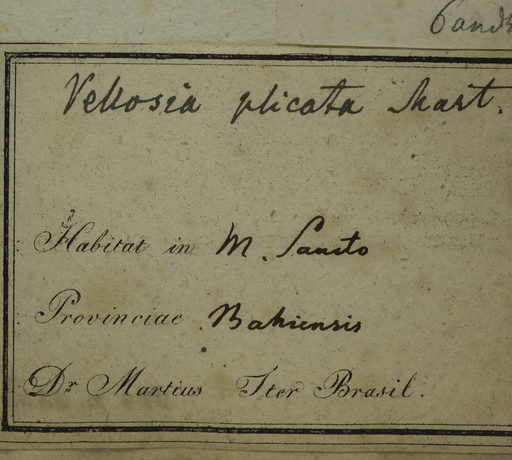 6 andr
Vellosia plicata Mart.
Habitat in M. Sancto
Provinciae Bahiensis
Dr. Martius Iter Brasil.